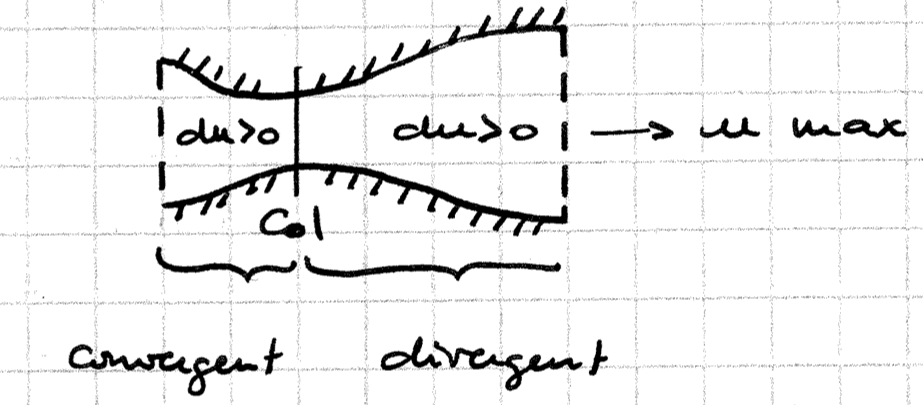 du>0 du>0 → u max
Col
convergent divergent